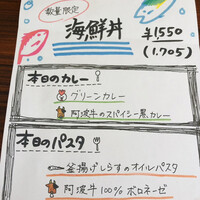 数量限定
海鮮丼 ¥1550
(1.705)
本日のカレー
グリーンカレー
阿波牛のスパイシー黒カレー
本日のパスタ
釜揚げしらすのオイルパスタ
阿波牛100%ボロネーゼ